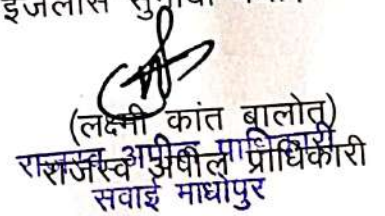 इजलास सुनाया
(लक्ष्मी कांत बालोत)
राजस्व अपील प्राधिकारी
राजस्व अपील प्राधिकारी
सवाई माधोपुर